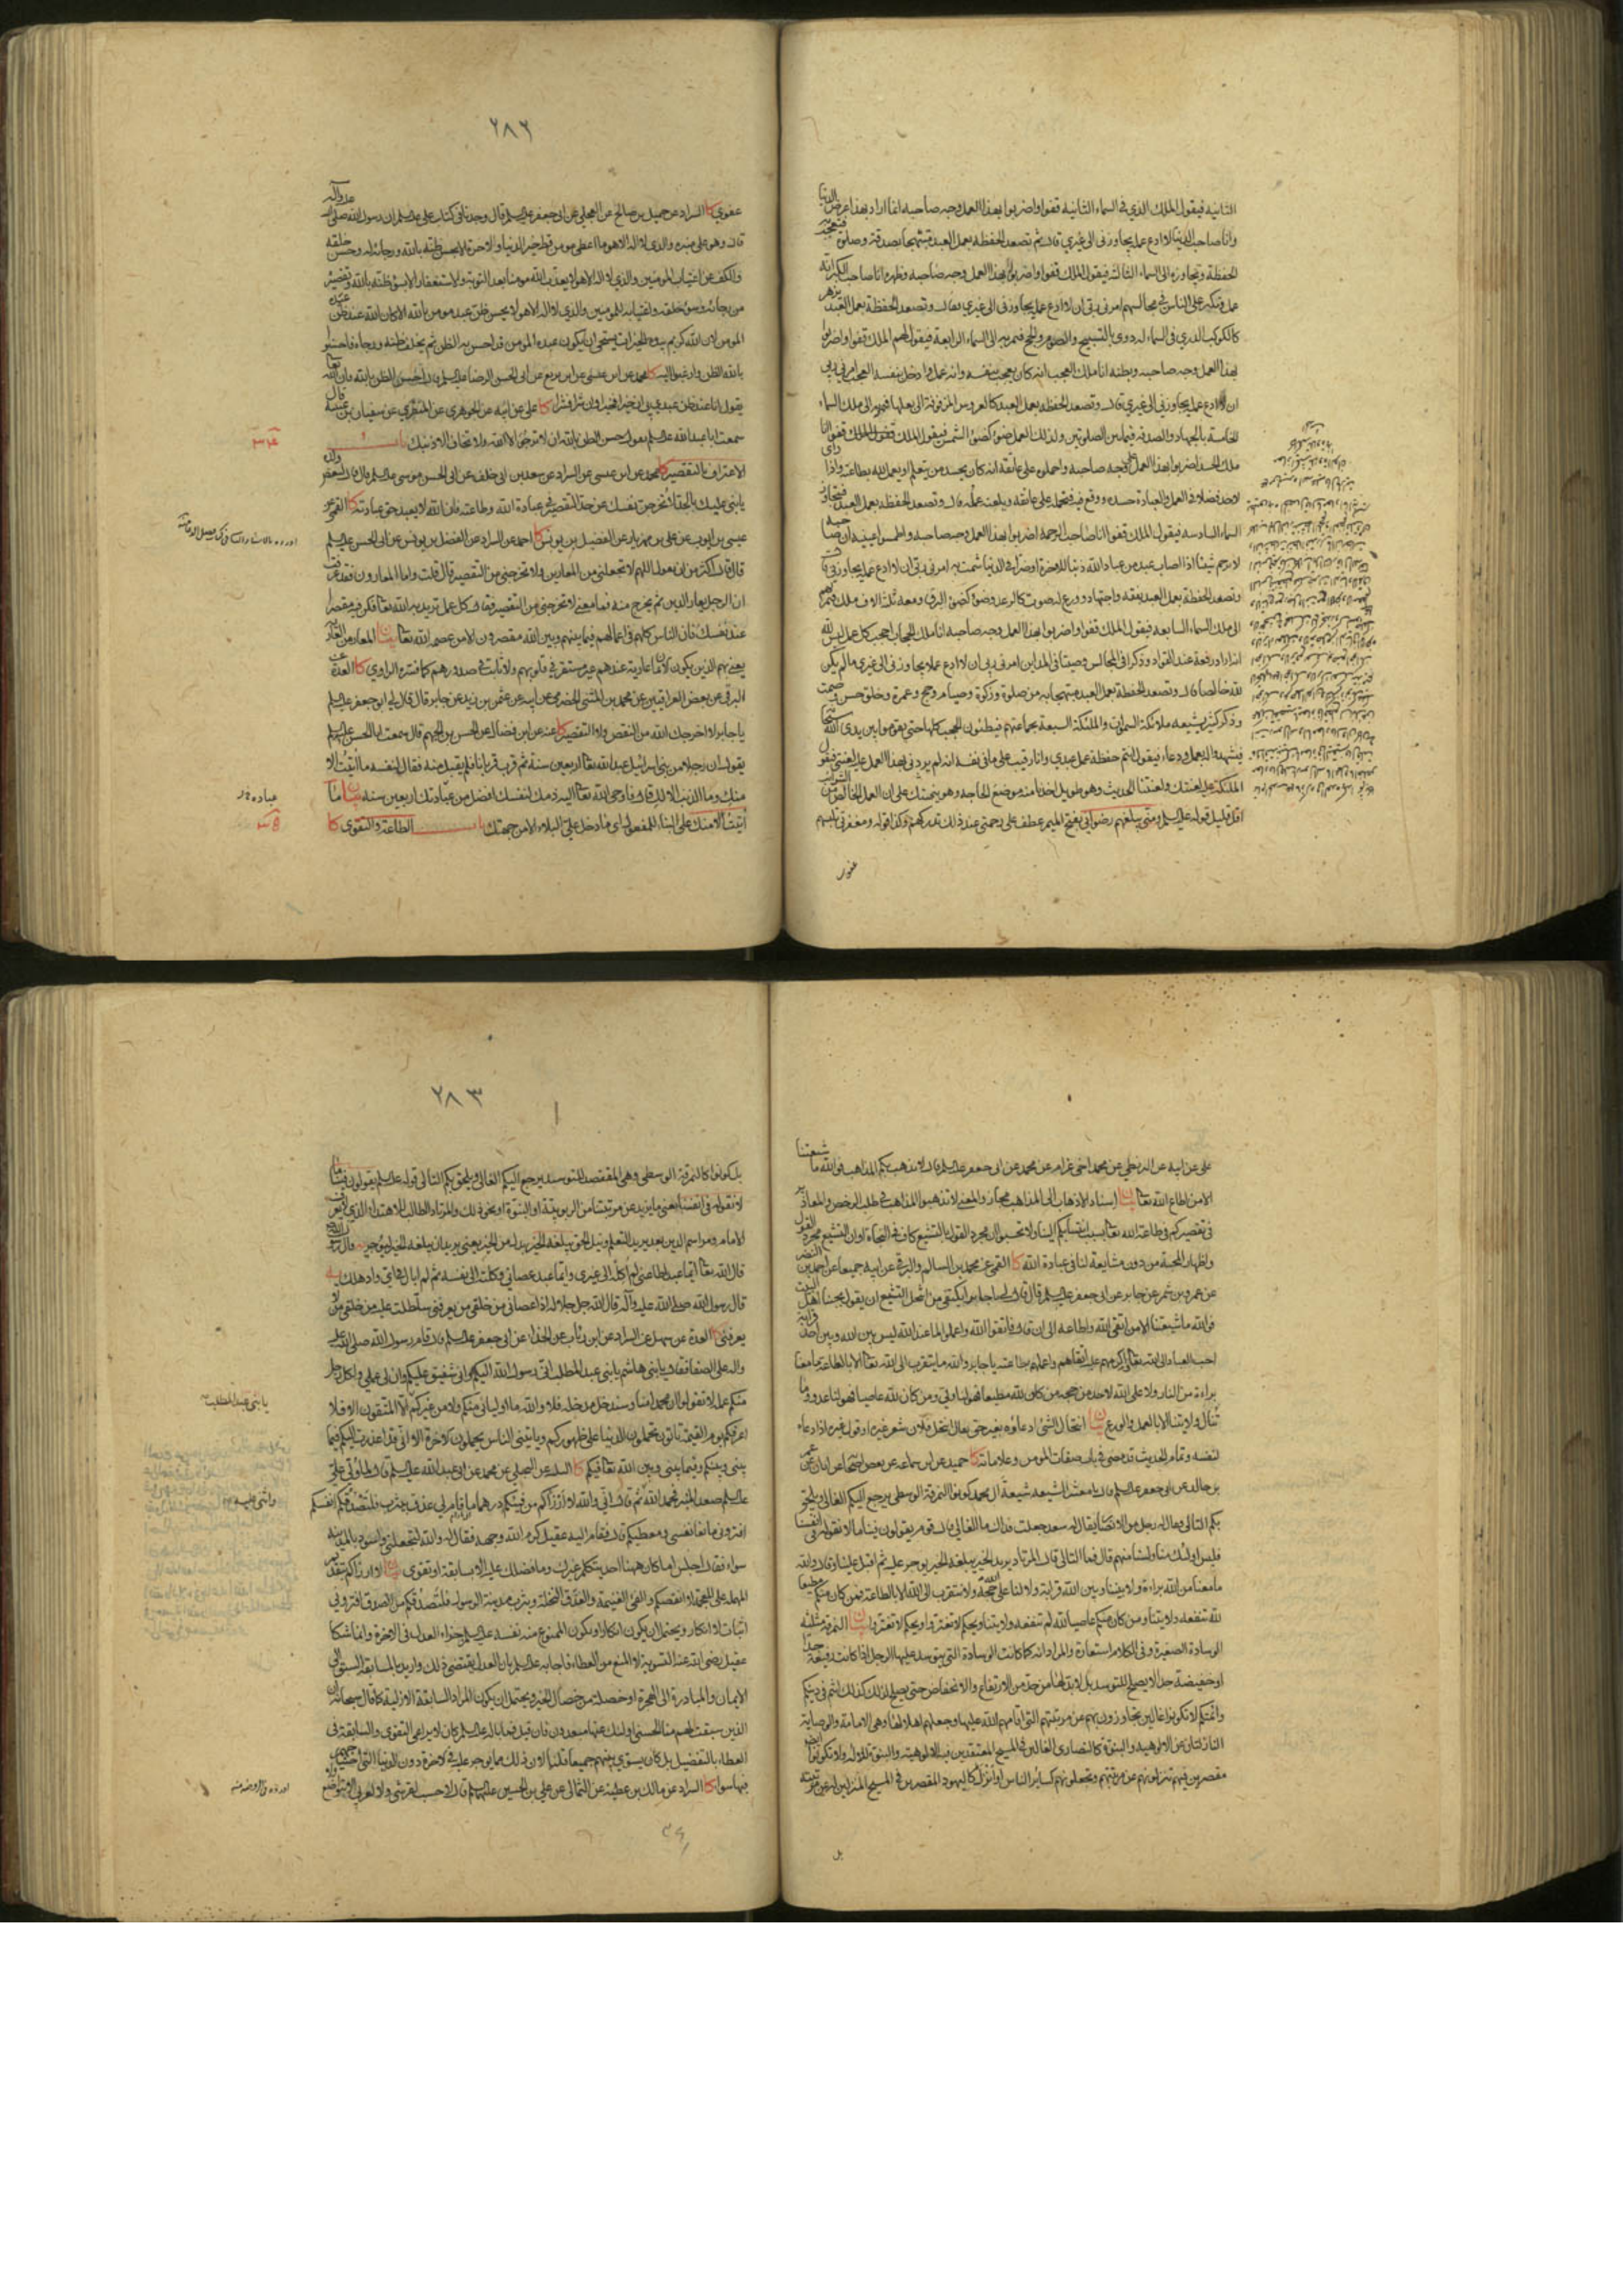 الثانية فيقول الملك الذي في السماء الثانية قفوا واضربوا بهذا العمل وجه صاحبه انما اراد بهذا عرض الدنيا
وانا صاحب الدنيا لا ادع عمله يجاوزني الى غيري قال ثم تصعد الحفظة بعمل العبد مبتهجا بصدقة وصلوة فتعجب به
الحفظة وتجاوزه الى السماء الثالثة فيقول الملك قفوا واضربوا بهذا العمل وجه صاحبه وظهره انا صاحب الكبر انه
عمل وتكبر على الناس في مجالسهم امرني ربي ان لا ادع عمله يجاوزني الى غيري قال وتصعد الحفظة بعمل العبد يزهر
كالكوكب الدري في السماء له دوي بالتسبيح والصوم والحج فتمر به الى السماء الرابعة فيقول لهم الملك قفوا واضربوا
بهذا العمل وجه صاحبه وبطنه انا ملك العجب انه كان يعجب بنفسه وانه عمل وادخل نفسه العجب امرني ربي
ان لا ادع عمله يجاوزني الى غيري قال وتصعد الحفظة بعمل العبد كالعروس المزفوفة الى بعلها فتمر به الى ملك السماء
الخامسة بالجهاد والصدقة فيما بين الصلوتين ولذلك العمل ضوء كضوء الشمس فيقول الملك قفوا انا
ملك الحسد اضربوا بهذا العمل وجه صاحبه واحملوه على عاتقه انه كان يحسد من يتعلم او يعمل لله بطاعته واذا راى
لاحد فضلا في العمل والعبادة حسده ووقع فيه فيحمله على عاتقه ويلعنه عمله قال وتصعد الحفظة بعمل العبد فيتجاوز
السماء السادسة فيقول الملك قفوا انا صاحب الرحمة اضربوا بهذا العمل وجه صاحبه واطمسوا عينيه ان صاحبه
لا يرحم شيئا اذا اصاب عبد من عباد الله ذنبا للاخرة او ضرا في الدنيا شمت به امرني ربي ان لا ادع عمله يجاوزني قال
وتصعد الحفظة بعمل العبد بفقه واجتهاد وورع له صوت كالرعد وضوء كضوء البرق ومعه ثلثة الاف ملك فتمر بهم
الى ملك السماء السابعة فيقول الملك قفوا واضربوا بهذا العمل وجه صاحبه انا ملك الحجاب احجب كل عمل ليس لله
انه اراد رفعة عند القواد وذكرا في المجالس وصيتا في المداين امرني ربي ان لا ادع عمله يجاوزني الى غيري ما لم يكن
لله خالصا قال وتصعد الحفظة بعمل العبد مبتهجا به من صلوة وزكوة وصيام وحج وعمرة وخلق حسن وصمت
وذكر كثير يشيعه ملائكة السموات والملئكة السبعة بجماعتهم فيطئون الحجب كلها حتى يقوموا بين يدي الله سبحانه
فيشهدوا له بعمل ودعاء فيقول انتم حفظة عمل عبدي وانا رقيب على ما في نفسه انه لم يردني بهذا العمل عليه لعنتي فيقول
الملئكة عليه لعنتك ولعنتنا الحديث وهو طويل اخذنا منه موضع الحاجة وهو ينبهك على ان العمل الخالص من الشوائب
اقل قليل قوله عليه السلم ومني يبلغهم رضواني بفتح الميم عطف على رحمتي عند ذلك تداركهم وكذا قوله ومغفرتي تلبسهم
عفوي
٢٨٢
عفوي كا السراد عن جميل بن صالح عن العجلي عن ابي جعفر عليه السلم قال وجدنا في كتاب علي عليه السلم ان رسول الله صلى الله عليه واله
قال وهو على منبره والذي لا اله الا هو ما اعطي مومن قط خير الدنيا والاخرة الا بحسن ظنه بالله ورجائه له وحسن خلقه
والكف عن اغتياب المومنين والذي لا اله الا هو لا يعذب الله مومنا بعد التوبة والاستغفار الا بسوء ظنه بالله وتقصير
من رجائه وسوء خلقه واغتيابه للمومنين والذي لا اله الا هو لا يحسن ظن عبد مومن بالله الا كان الله عند ظن عبده
المومن لان الله كريم بيده الخيرات يستحيي ان يكون عبده المومن قد احسن به الظن ثم يخلف ظنه ورجاءه فاحسنوا
بالله الظن وارغبوا اليه كا محمد عن ابن عيسى عن ابن بزيع عن ابي الحسن الرضا عليه السلم قال احسن الظن بالله فان الله تعالى
يقول انا عند ظن عبدي بي ان خيرا فخيرا وان شرا فشرا كا علي عن ابيه عن الجوهري عن المنقري عن سفيان بن عيينة قال
سمعت ابا عبد الله عليه السلم يقول حسن الظن بالله ان لا ترجو الا الله ولا تخاف الا ذنبك باب
الاعتراف بالتقصير كا محمد عن ابن عيسى عن السراد عن سعد بن ابي خلف عن ابي الحسن موسى عليه السلم قال قال لبعض ولده
يا بني عليك بالجد لا تخرجن نفسك عن حد التقصير في عبادة الله وطاعته فان الله لا يعبد حق عبادته كا القمي عن
عيسى بن ايوب عن علي بن مهزيار عن الفضيل بن يونس كا احمد عن السراد عن الفضل بن يونس عن ابي الحسن عليه السلم
قال قال اكثر من ان يقول اللهم لا تجعلني من المعارين ولا تخرجني من التقصير قال قلت واما المعارون فقد عرفت
ان الرجل يعار الدين ثم يخرج منه فما معنى لا تخرجني من التقصير فقال كل عمل تريد به الله تعالى فكن فيه مقصرا
عند نفسك فان الناس كلهم في اعمالهم فيما بينهم وبين الله مقصرون الا من عصمه الله تعالى بيان المعارون من العارية
يعني بهم الذين يكون الايمان عارية عندهم غير مستقر في قلوبهم ولا ثابت في صدورهم كما فسره الراوي كا العدة عن
البرقي عن بعض العراقيين عن محمد بن المثنى الحضرمي عن ابيه عن عثمن بن زيد عن جابر قال قال لي ابو جعفر عليه السلم
يا جابر لا اخرجك الله من النقص ولا التقصير كا عنه عن ابن فضال عن الحسن بن الجهم قال سمعت ابا الحسن عليه السلم
يقول ان رجلا من بني اسرائيل عبد الله تعالى اربعين سنة ثم قرب قربانا فلم يقبل منه فقال لنفسه ما اتيت الا
منك وما الذنب الا لك قال فاوحى الله تعالى اليه ذمك لنفسك افضل من عبادتك اربعين سنة بيان ما
اتيت الا منك على البناء للمفعول اي ما دخل علي البلاء الا من جهتك باب الطاعة والتقوى كا
علي عن ابيه عن البزنطي عن محمد اخي غرام عن محمد عن ابي جعفر عليه السلم قال لا تذهب بكم المذاهب فوالله ما شيعتنا
الا من اطاع الله تعالى بيان اسناد الاذهاب الى المذاهب مجاز والمعنى لا تذهبوا المذاهب في طلب الرخص والمعاذير
في تقصيركم في طاعة الله تعالى بسبب انتسابكم الينا ولا تحسبوا ان مجرد القول بالتشيع كاف في النجاة او ان التشيع مجرد القول
واظهار المحبة من دون مشايعة لنا في عبادة الله كا القمي عن محمد بن السالم والبرقي عن ابيه جميعا عن احمد بن النضر
عن عمرو بن شمر عن جابر عن ابي جعفر عليه السلم قال قال لي يا جابر ايكتفي من انتحل التشيع ان يقول بحبنا اهل البيت
فوالله ما شيعتنا الا من اتقى الله واطاعه الى ان قال فاتقوا الله واعملوا لما عند الله ليس بين الله وبين احد قرابة
احب العباد الى الله تعالى واكرمهم عليه اتقاهم واعملهم بطاعته يا جابر والله ما يتقرب الى الله تعالى الا بالطاعة ما معنا
براءة من النار ولا على الله لاحد من حجة من كان لله مطيعا فهو لنا ولي ومن كان لله عاصيا فهو لنا عدو وما
تنال ولايتنا الا بالعمل والورع بيان انتحال الشيء ادعاؤه بغير حق يقال انتحل فلان شعر غيره او قول غيره اذا ادعاه
لنفسه وتمام الحديث قد مضى في باب صفات المومن وعلاماته كا حميد عن ابن سماعة عن بعض اصحابه عن ابان عن عمر
بن خالد عن ابي جعفر عليه السلم قال يا معشر الشيعه شيعة آل محمد كونوا النمرقة الوسطى يرجع اليكم الغالي ويلحق
بكم التالي فقال له رجل من الانصار يقال له سعد جعلت فداك ما الغالي قال قوم يقولون فينا ما لا نقوله في انفسنا
فليس اولئك منا ولسنا منهم قال فما التالي قال المرتاد يريد الخير يبلغه الخير يوجر عليه ثم اقبل علينا وقال والله
ما معنا من الله براءة ولا بيننا وبين الله قرابة ولا لنا على الله حجة ولا نتقرب الى الله الا بالطاعة فمن كان منكم مطيعا
لله تنفعه ولايتنا ومن كان منكم عاصيا لله لم تنفعه ولايتنا ويحكم لا تغتروا ويحكم لا تغتروا بيان النمرقة مثلثة
الوسادة الصغيرة وفي الكلام استعارة والمراد انه كما كانت الوسادة التي يتوسد عليها الرجل اذا كانت رفيعة جدا
او خفيضة جدا لا يصلح للتوسد بل لا بد لها من حد من الارتفاع والانخفاض حتى يصلح لذلك كذلك انتم في دينكم
وائمتكم لا تكونوا غالين تجاوزون بهم عن مرتبتهم التي اقامهم الله عليها وجعلهم اهلا لها وهي الامامة والوصاية
النازلتان عن الالوهية والنبوة كالنصارى الغالين في المسيح المعتقدين فيه الالوهية والبنوة للاله ولا تكونوا ايضا
مقصرين فيهم تنزلونهم عن مرتبتهم وتجعلونهم كسائر الناس او انزل كاليهود المقصرين في المسيح المنزلين له عن مرتبته
بل
٢٨٣
بل كونوا كالنمرقة الوسطى وهي المقتصدة للتوسد يرجع اليكم الغالي ويلحق بكم التالي قوله عليه السلم يقولون فينا ما
لا نقوله في انفسنا يعني ما يزيد عن مرتبتنا من الربوبية او النبوة او نحو ذلك والمرتاد الطالب للاهتداء الذي لا يعرف
الامام ومراسم الدين بعد يريد التعلم ونيل الحق يبلغه الخير بدل من الخير يعني يريد ان يبلغه الخير ليوجر
قال الله تعالى ايما عبد اطاعني لم اكله الى غيري وايما عبد عصاني وكلته الى نفسه ثم لم ابال في اي واد هلك يه
قال رسول الله صلى الله عليه وآله قال الله جل جلاله اذا عصاني من خلقي من يعرفني سلطت عليه من خلقي من لا
يعرفني كا العدة عن سهل عن السراد عن ابن رئاب عن الحذاء عن ابي جعفر عليه السلم قال قام رسول الله صلى الله عليه
واله على الصفا فقال يا بني هاشم يا بني عبد المطلب اني رسول الله اليكم واني شفيق عليكم وان لي عملي ولكل رجل
منكم عمله لا تقولوا ان محمدا منا وسندخل مدخله فلا والله ما اوليائي منكم ولا من غيركم الا المتقون الا فلا
اعرفكم يوم القيمة تاتون تحملون الدنيا على ظهوركم ويأتيني الناس يحملون الاخرة الا اني قد اعذرت اليكم فيما
بيني وبينكم وفيما بيني وبين الله تعالى فيكم كا الثلثة عن البجلي عن محمد عن ابي عبد الله عليه السلم قال لما ولي علي
عليه السلم صعد المنبر فحمد الله ثم قال اني والله لا ارزاكم من فيئكم درهما ما قام لي عذق بيثرب فلتصدقكم انفسكم
افتروني مانعا نفسي ومعطيكم قال فقام اليه عقيل كرم الله وجهه فقال له والله لتجعلني واسود بالمدينة
سواء فقال اجلس اما كان ههنا احد يتكلم غيرك وما فضلك عليه الا بسابقة او تقوى بيان لا ارزاكم بتقديم
المهملة على المعجمة لا انقصكم والفيء الغنيمة والعذق النخلة ويثرب مدينة الرسول فلتصدقكم من الصدق افتروني
اثبات لانكار ويحتمل ان يكون انكارا ويكون الممنوع منه نفسه عليه السلم جزاء العدل في الاخرة وانما شكا
عقيل رضي الله عنه التسوية لا المنع من العطاء فاجابه عليه السلم بان العدل يقتضي ذلك واريد بالسابقة السبق الى
الايمان والمبادرة الى الهجرة او خصلة من خصال الخير ويحتمل ان يكون المراد السابقة الازلية كما قال سبحانه ان
الذين سبقت لهم منا الحسنى اولئك عنها مبعدون فان قيل فما باله عليه السلم كان لا يراعي التقوى والسابقة في
العطاء بالتفضيل بل كان يسوي بينهم جميعا قلنا لان ذلك مما يوجر عليه في الاخرة دون الدنيا التي احتياجهم
فيها سواء كا السراد عن مالك بن عطية عن الثمالي عن علي بن الحسين عليهما السلم قال لا حسب لقرشي ولا لعربي الا بتواضع
يا بني عبد المطلب